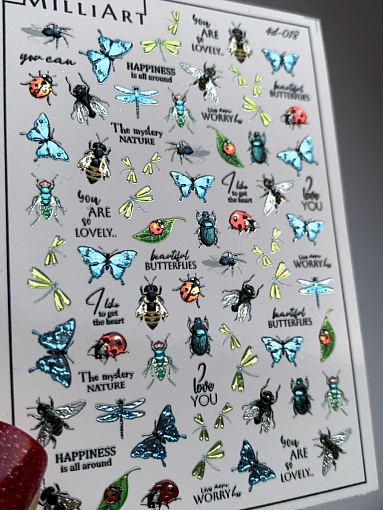 MILLIART
4d-018
you
ARE
so
LOVELY..
you can
HAPPINESS
is all around
beautiful
BUTTERFLIES
Live more
WORRY less
The mystery
NATURE
I like
to get
the heart
I love
YOU
you
ARE
so
LOVELY..
beautiful
BUTTERFLIES
Live more
WORRY less
I like
to get
the heart
beautiful
BUTTERFLIES
The mystery
NATURE
I love
YOU
HAPPINESS
is all around
you
ARE
so
LOVELY..
Live more
WORRY less